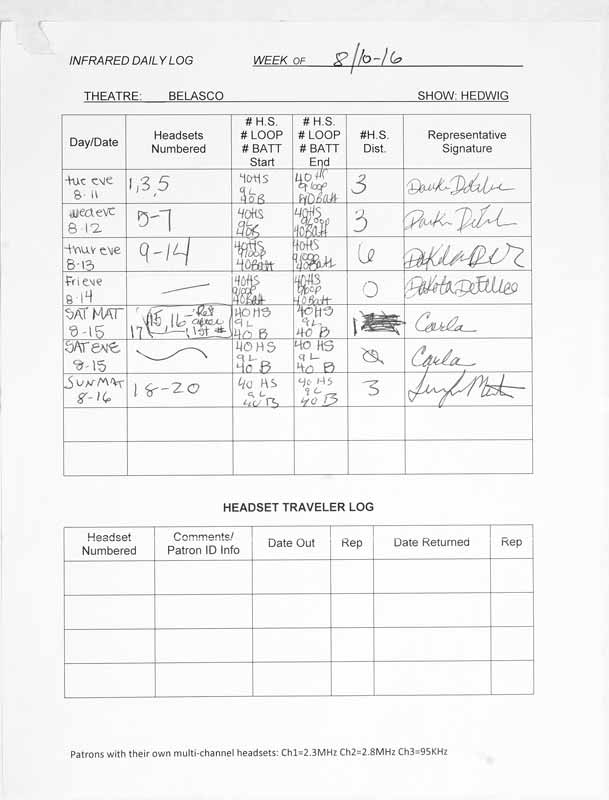 INFRARED DAILY LOG WEEK OF 8/10-16
THEATRE: BELASCO SHOW: HEDWIG
Day/Date Headsets Numbered # H.S. # LOOP # BATT Start # H.S. # LOOP # BATT End #H.S. Dist. Representative Signature
tue eve 8-11 1,3,5 40HS 9L 40B 40HS 9loop 40Batt 3
wed eve 8-12 5-7 40HS 9L 40B 40HS 9Loop 40Batt 3
thur eve 8-13 9-14 40HS 9loop 40Batt 40HS 9loop 40Batt 6
Fri eve 8-14 — 40HS 9loop 40Batt 40HS 9loop 40Batt 0 Dakota
SAT MAT 8-15 17 15, 16 - 40HS 9L 40 B 40HS 9L 40 B 1 Carla
SAT EVE 8-15 40 HS 9 L 40 B 40 HS 9 L 40 B 0 Carla
SUN MAT 8-16 18-20 40 HS 9L 40 B 40 HS 9L 40 B 3
HEADSET TRAVELER LOG
Headset Numbered Comments/ Patron ID Info Date Out Rep Date Returned Rep
Patrons with their own multi-channel headsets: Ch1=2.3MHz Ch2=2.8MHz Ch3=95KHz